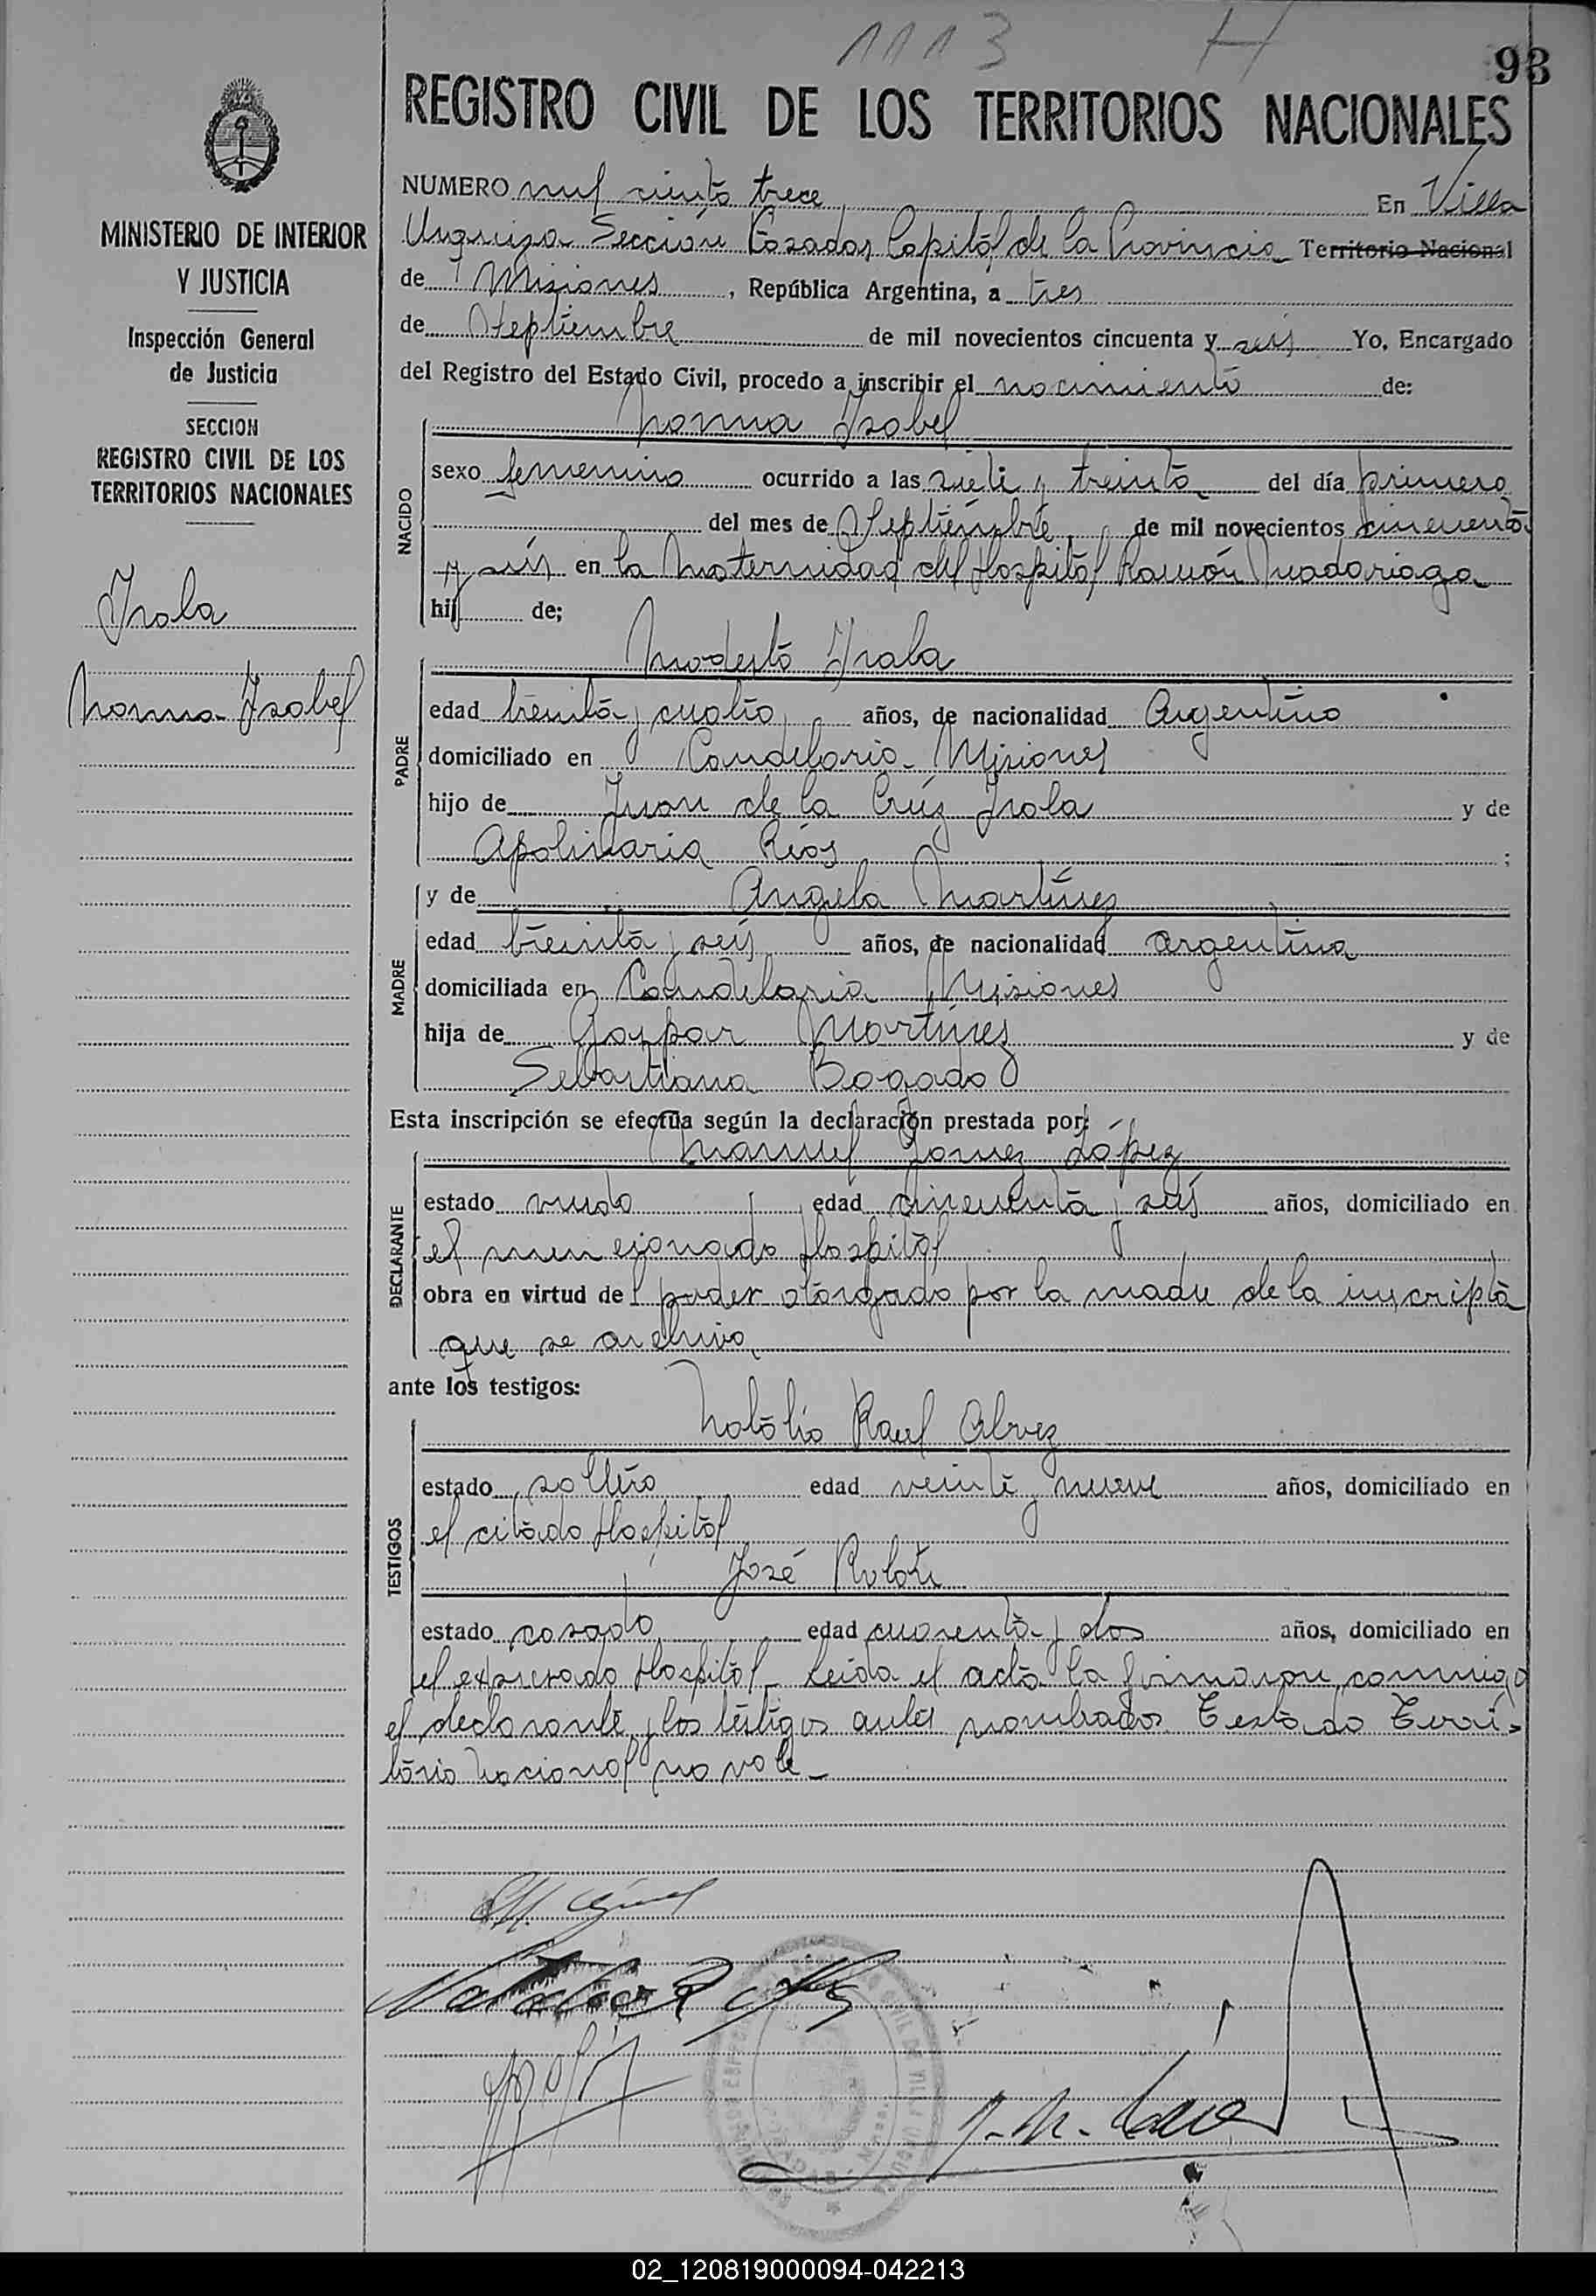 1113 H
93
REGISTRO CIVIL DE LOS TERRITORIOS NACIONALES
MINISTERIO DE INTERIOR
Y JUSTICIA
Inspección General
de Justicia
SECCION
REGISTRO CIVIL DE LOS
TERRITORIOS NACIONALES
Irala
Norma Isabel
NUMERO mil ciento trece En Villa
Urquiza Sección Posadas Capital de la Provincia Territorio Nacional
de Misiones, República Argentina, a tres
de Septiembre de mil novecientos cincuenta y seis Yo, Encargado
del Registro del Estado Civil, procedo a inscribir el nacimiento de:
Norma Isabel
NACIDO
sexo femenino ocurrido a las siete y treinta del día primero
del mes de Septiembre de mil novecientos cincuenta
y seis en la Maternidad del Hospital Ramón Madariaga
hij de;
Modesto Irala
PADRE
edad treinta y cuatro años, de nacionalidad Argentino
domiciliado en Candelaria - Misiones
hijo de Juan de la Crúz Irala y de
Apolinaria Rios ;
y de Angela Martínez
MADRE
edad treinta y seis años, de nacionalidad argentina
domiciliada en Candelaria Misiones
hija de Gaspar Martínez y de
Sebastiana Bogado
Esta inscripción se efectúa según la declaración prestada por:
Manuel Gomez López
DECLARANTE
estado viudo edad cincuenta y seis años, domiciliado en
el mencionado Hospital
obra en virtud del poder otorgado por la madre de la inscripta
que se archiva
ante los testigos:
Natalio Raul Alvez
TESTIGOS
estado soltero edad veinte y nueve años, domiciliado en
el citado Hospital
José
estado casado edad cuarenta y dos años, domiciliado en
el expresado Hospital - Leida el acta la firmaron conmigo
el declarante y los testigos antes nombrados. Testado Terri-
torio Nacional no vale -
02_120819000094-042213